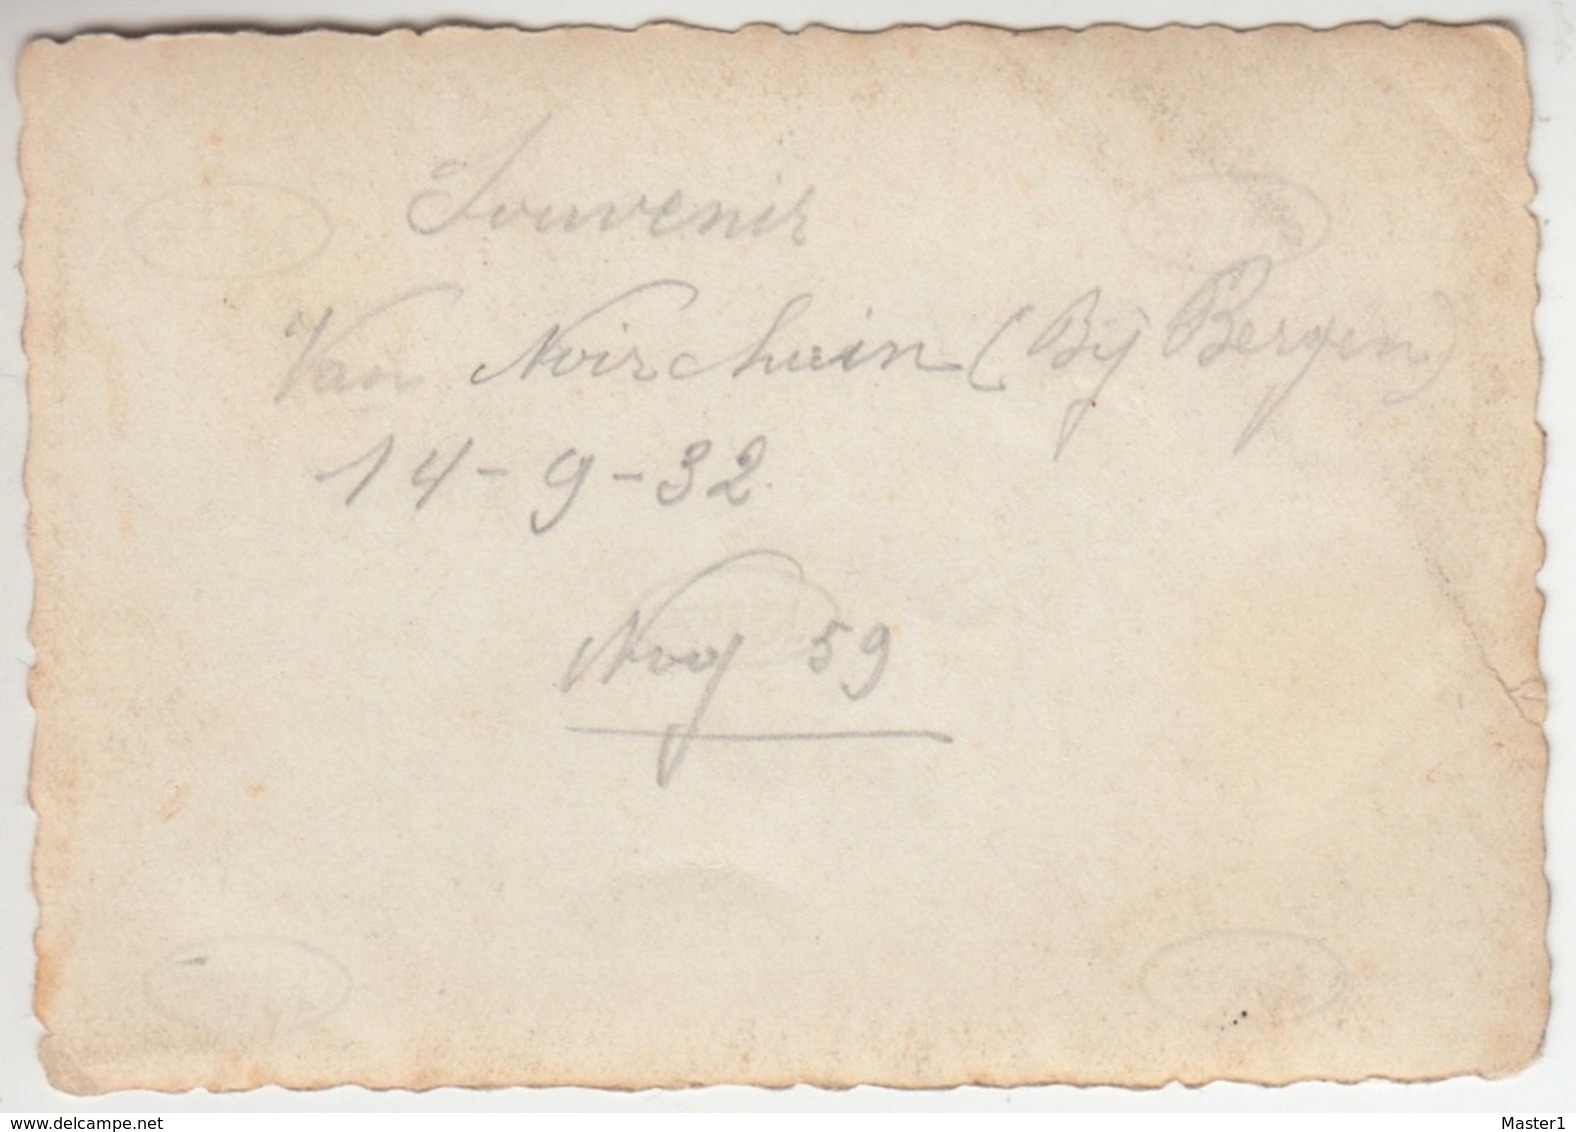 Souvenir
Van Noirchain (Bij Bergen)
14-9-32
Nog 59
www.delcampe.net
Master1